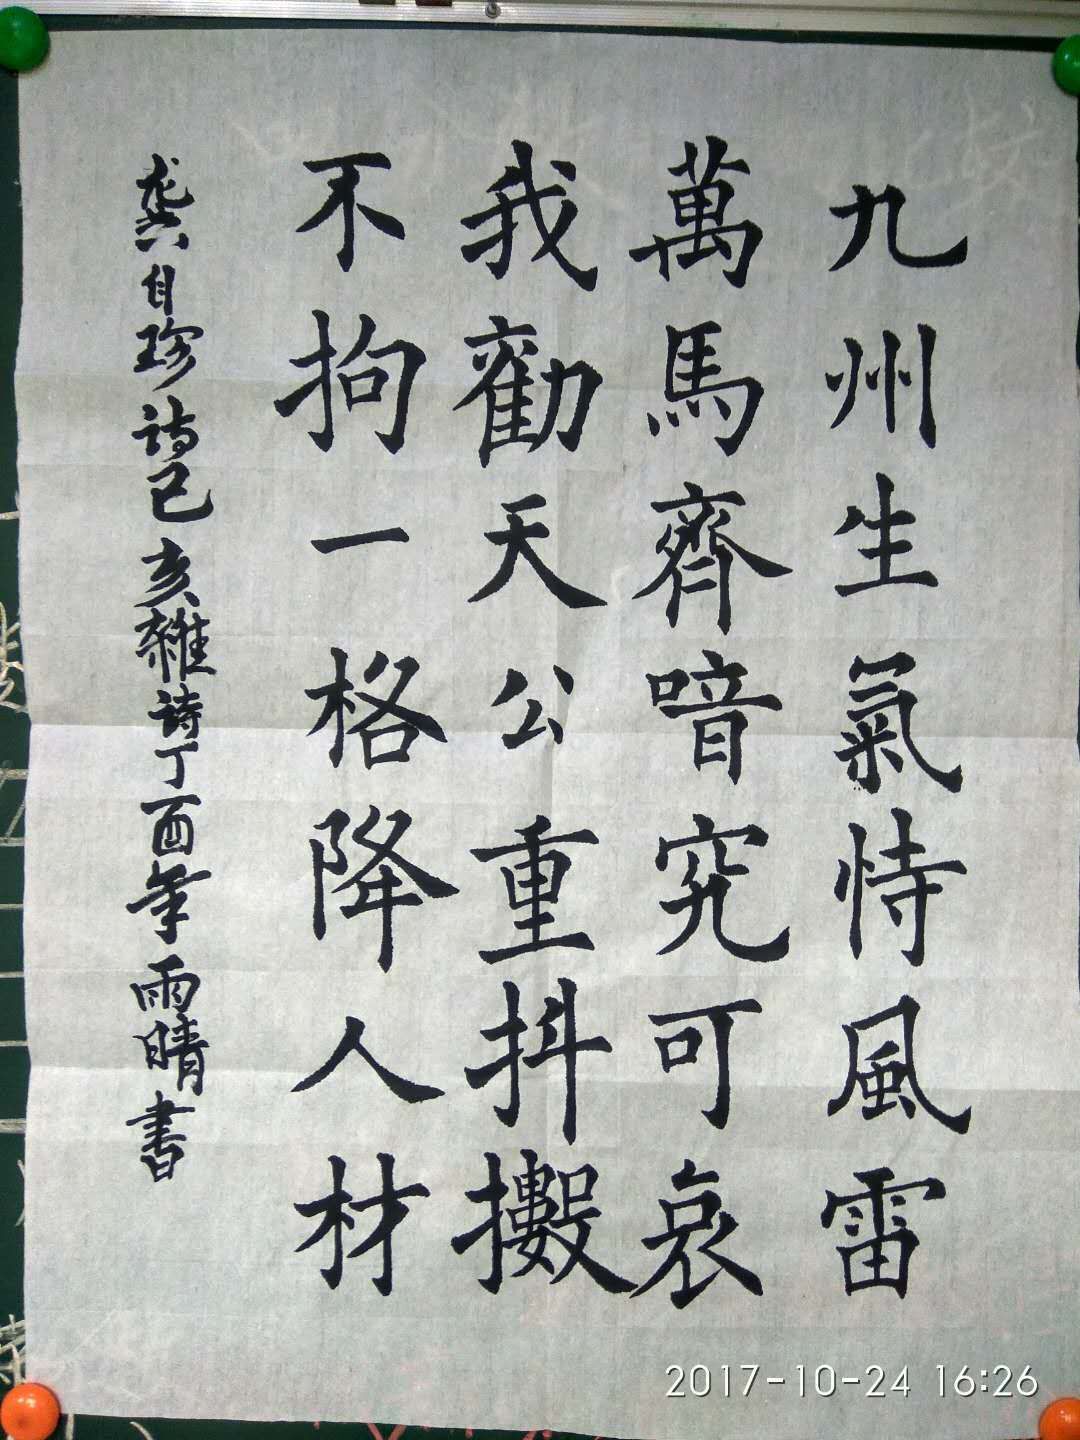 九州生氣恃風雷
萬馬齊喑究可哀
我勸天公重抖擻
不拘一格降人材
龔自珍诗己亥雜詩丁酉年雨晴書
2017-10-24 16:26